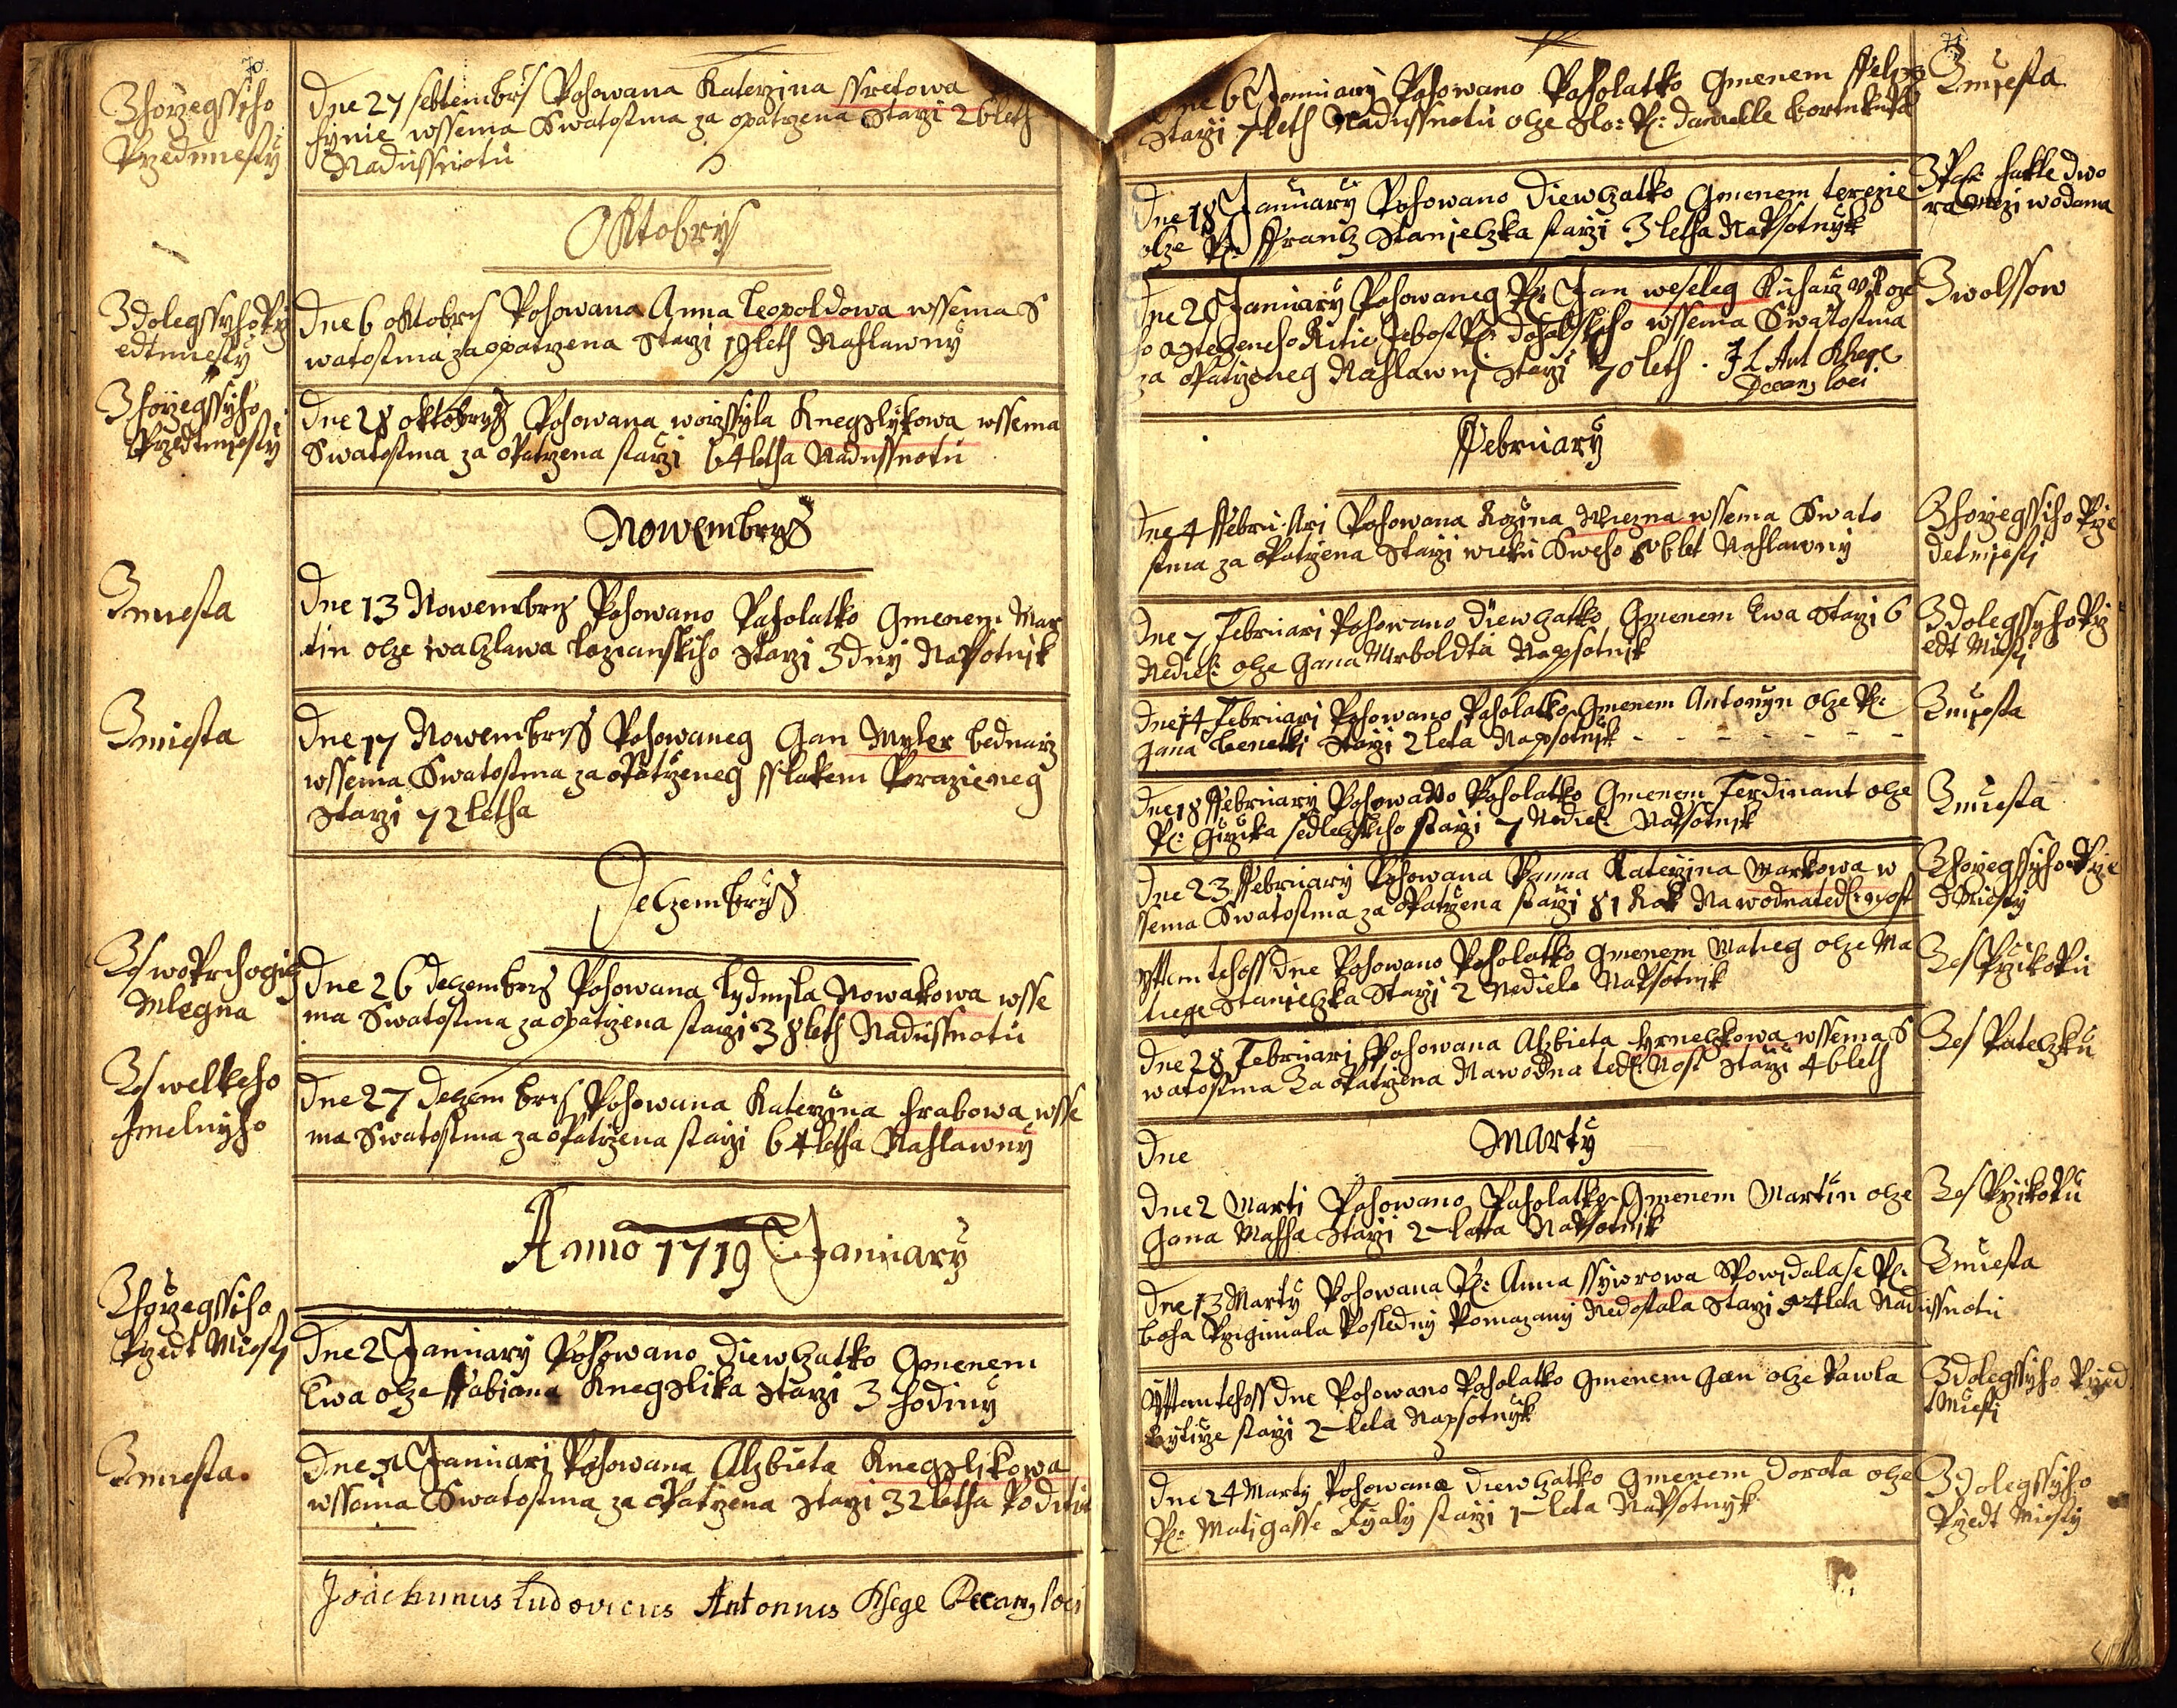 70
Zhorzegssiho
Przedmiesty
Dne 27 septembris Pohowana Katerzina ssretowa
wssema Swatostma za opatrzena Starzi 26 leth
Nadussnotu
Oktobris
Zdolegssyho Prz
edtmiesty
Dne 6 oktobris Pohowana Anna Leopoldowa wssema S
watostma za opatrzena Starzi 19 leth Nahlawny
Zhorzegssyho
Przedtmiesty
Dne 28 oktobrys Pohowanaworzssyla Knegzlykowa wssema
Swatostma za opatrzena starzi 64 letha Nadussnotu
Nowembrys
Zmiesta
Dne 13 Nowembris Pohowano Paholatko Gmenem Mar
tin otze watzlawa Lozianskiho Starzi 3 dny Napsotnik
Zmiesta
Dne 17 Nowembris Pohowaneg Gan Myler bednarz
wssema Swatostma za opatrzeneg sslakem Porazieneg
Starzi 72 letha
Detzembrys
Zes woprchogig
Mlegna
Dne 26 detzembris Pohowana Lydmila Nowakowa wsse
ma Swatostma za opatrzena starzi 38 leth Nadussnotu
Zes welkeho
Jmelnyho
Dne 27 detzembris Pohowana Katerzina hrabowa wsse
ma Swatostma za opatrzena starzi 64 letha Nahlawny
Anno 1719 January
Zhorzegssiho
Przedt Miesti
Dne 2 January Pohowano diewtzatko Gmenem
Ewa otze ffabiana Knegzlika Starzi 3 hodiny
Zmiesta
Dne Januari Pohowana Alzbieta Knegzlikowa
wssema Swatostma za opatrzena Starzi 32 letha
Joachimus Ludovicus Antonius Khege Decanus loci
71
Dne 6 January Pohowano Paholatko Gmenem
Starzi 7 leth Nadussnotu otze Slo: P: danielle
Zmiesta
Dne 18 January Pohowano Diewtzatko Gmenem terezie
otze P: ffrantz Stanietzka starzi 3 letha Napsotnyk
hakle dwo
ra Mezi wodama
Dne 28 January Pohowaneg P: Jan weseleg Kuharz
wssema Swatostma
za opatrzeneg Nahlawni Starzi 70 leth. J L Ant Khege
Decanus loci
Zwolssow
ffebruary
Dne 4 ffebruari Pohowana Rozina wssema Swato
stma za opatrzena Starzi wieku Sweho 86 let Nahlawny
Zhorzegssiho Prze
detmiesti
Dne 7 Februari Pohowano diewtzatko Gmenem Ewa Starzi 6
Nediel: otze Gana Mrboldta Napsotnik
Zdolegssyho Prz
edt Miesti
Dne 14 Februari Pohowano Paholatko Gmenem Antonyn otze P:
Gana Benetki Starzi 2 leta Napsotnik
Zmiesta
Dne 18 ffebruary Pohowano Paholatko Gmenem Ferdinant otze
P: Girzika sedletzkiho starzi 7 Nediel: Napsotnik
Zmiesta
Dne 23 ffebruary Pohowana Panna Katerzina Markowa w
ssema Swatostma za opatrzena starzi 81 Rok
Zhorzegssyho Prze
d Miesty
ttem tehoss dne Pohowano Paholatko Gmenem Matieg otze Ma
tiege Stanietzka Starzi 2 Nediele Napsotnik
Zes Przikopu
Dne 28 Februari Pohowana Alzbieta hrnetzkowa wssema S
watostma Za opatrzena Starzi 46 leth
Zes Patetzku
Dne Marty
Dne 2 Marti Pohowano Paholatko Gmenem Martin otze
Gana Massa Starzi 2 letta Napsotnik
Zes Przikopu
Dne 13 Marty Pohowana P: Anna ssyworowa Spowidala se P:
boha Przigimala Posledny Pomazany Nedostala Starzi leta Nadussnotu
Zmiesta
ttem tehoss dne Pohowano Paholatko Gmenem Gan otze Pawla
starzi 2 leta Napsotnyk
Zdolegssyho Przed
Miesti
Dne 24 Marty Pohowana diewtzatko Gmenem Dorota otze
P: Matigasse Fyaly starzi 1 leta Napsotnyk
Zdolegssyho
Przedt Miesty